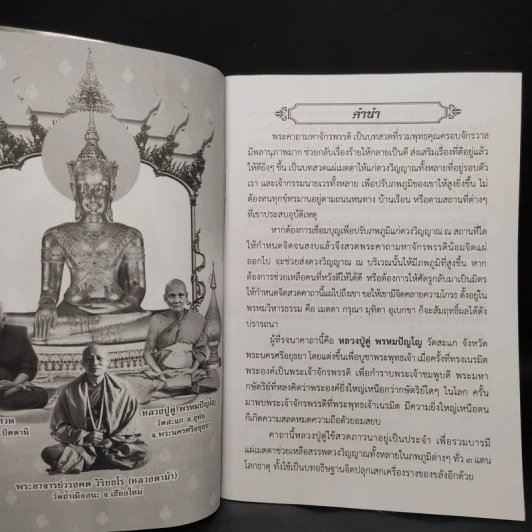 วัด
ปัตตานี
หลวงปู่ดู่ พรหมปัญโญ
วัดสะแก อ.อุทัย
จ.พระนครศรีอยุธยา
พระอาจารย์วรงคต วิริยธโร (หลวงตาม้า)
วัดถ้ำเมืองนะ จ.เชียงใหม่
คำนำ
พระคาถามหาจักรพรรดิ เป็นบทสวดที่รวมพุทธคุณครอบจักรวาล
มีพลานุภาพมาก ช่วยกลับเรื่องร้ายให้กลายเป็นดี ส่งเสริมเรื่องที่ดีอยู่แล้ว
ให้ดียิ่งๆ ขึ้น เป็นบทสวดแผ่เมตตาให้แก่ดวงวิญญาณทั้งหลายที่อยู่รอบตัว
เรา และเจ้ากรรมนายเวรทั้งหลาย เพื่อปรับภพภูมิของเขาให้สูงยิ่งขึ้น ไม่
ต้องทนทุกข์ทรมานอยู่ตามถนนหนทาง บ้านเรือน หรือตามสถานที่ต่างๆ
ที่เขาประสบอุบัติเหตุ
หากต้องการเชื่อมบุญเพื่อปรับภพภูมิแก่ดวงวิญญาณ ณ สถานที่ใด
ให้กำหนดจิตจนสงบแล้วจึงสวดพระคาถามหาจักรพรรดิน้อมจิตแผ่
ออกไป จะช่วยส่งดวงวิญญาณ ณ บริเวณนั้นให้มีภพภูมิที่สูงขึ้น หาก
ต้องการช่วยเหลือคนที่หวังดีให้ได้ดี หรือต้องการให้ศัตรูกลับมาเป็นมิตร
ให้กำหนดจิตสวดคาถานี้แผ่ไปถึงเขา ขอให้เขามีจิตคลายความโกรธ ตั้งอยู่ใน
พรหมวิหารธรรม คือ เมตตา กรุณา มุทิตา อุเบกขา ก็จะสัมฤทธิ์ผลได้ดัง
ปรารถนา
ผู้ที่รจนาคาถานี้คือ หลวงปู่ดู่ พรหมปัญโญ วัดสะแก จังหวัด
พระนครศรีอยุธยา โดยแต่งขึ้นเพื่อบูชาพระพุทธเจ้า เมื่อครั้งที่ทรงเนรมิต
พระองค์เป็นพระเจ้าจักรพรรดิ เพื่อกำราบพระเจ้าชมพูบดี พระมหา
กษัตริย์ที่หลงคิดว่าพระองค์ยิ่งใหญ่เหนือกว่ากษัตริย์ใดๆ ในโลก ครั้น
มาพบพระเจ้าจักรพรรดิที่พระพุทธเจ้าเนรมิต มีความยิ่งใหญ่เหนือตน
ก็เกิดความสลดหมดความถือตัวยอมสยบ
คาถานี้หลวงปู่ดู่ใช้สวดภาวนาอยู่เป็นประจำ เพื่อรวมบารมี
แผ่เมตตาช่วยเหลือสรรพดวงวิญญาณทั้งหลายในภพภูมิต่างๆ ทั่ว ๓ แดน
โลกธาตุ ทั้งใช้เป็นบทอธิษฐานจิตปลุกเสกเครื่องรางของขลังอีกด้วย